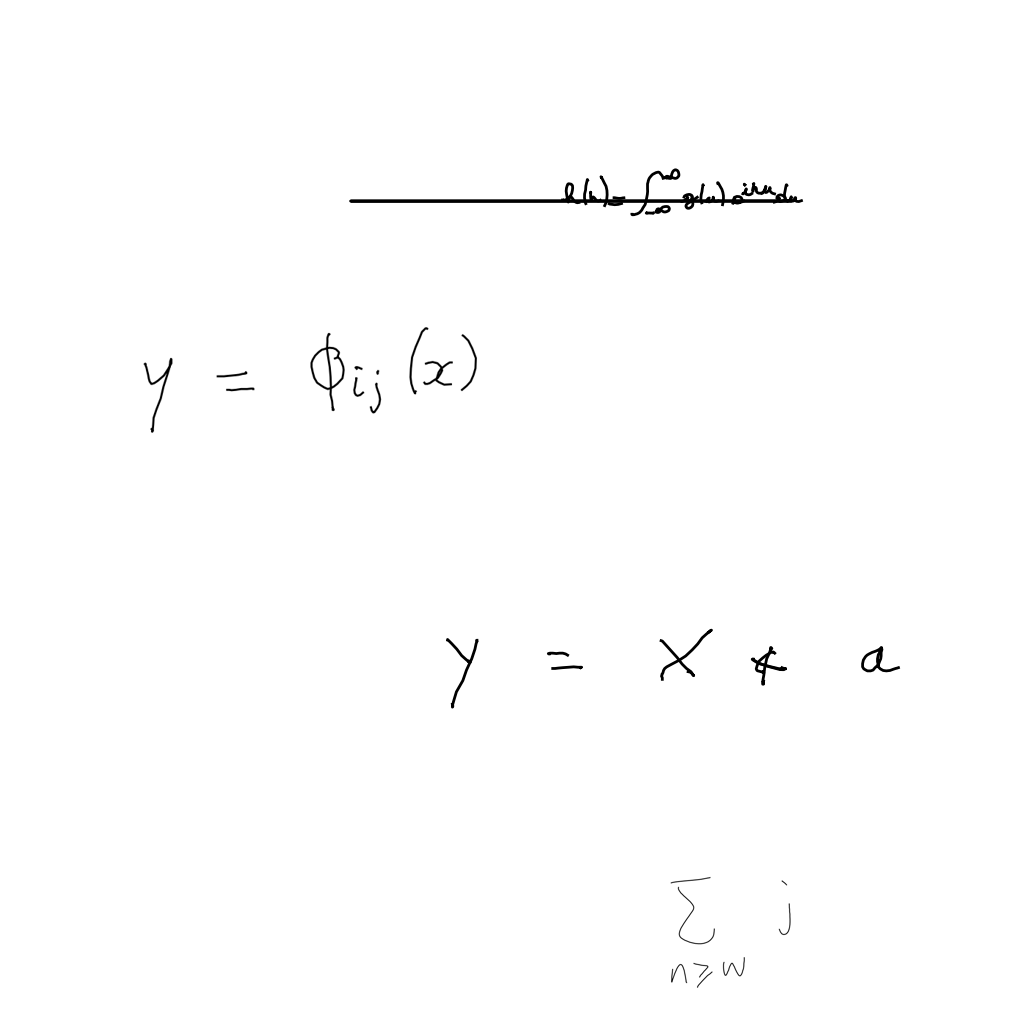 h(r) = ∫_{-∞}^{∞} g(u) e^{iru} du
y = ϕ_{ij}(x)
y = X * a
∑_{n≥w} j